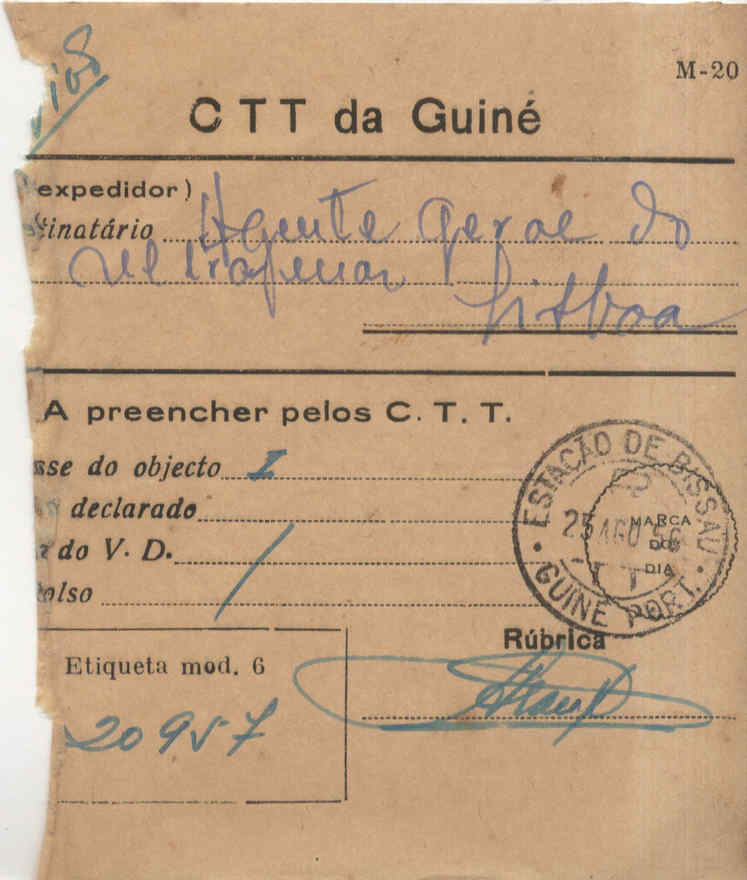 M-20
CTT da Guiné
expedidor)
tinatário Agente Geral do
Ultramar
Lisboa
A preencher pelos C. T. T.
sse do objecto 1
declarado
do V. D.
olso
ESTAÇÃO DE BISSAU
25 AGO 56
MARCA
DO
DIA
GUINÉ PORT.
Rúbrica
Etiqueta mod. 6
20957